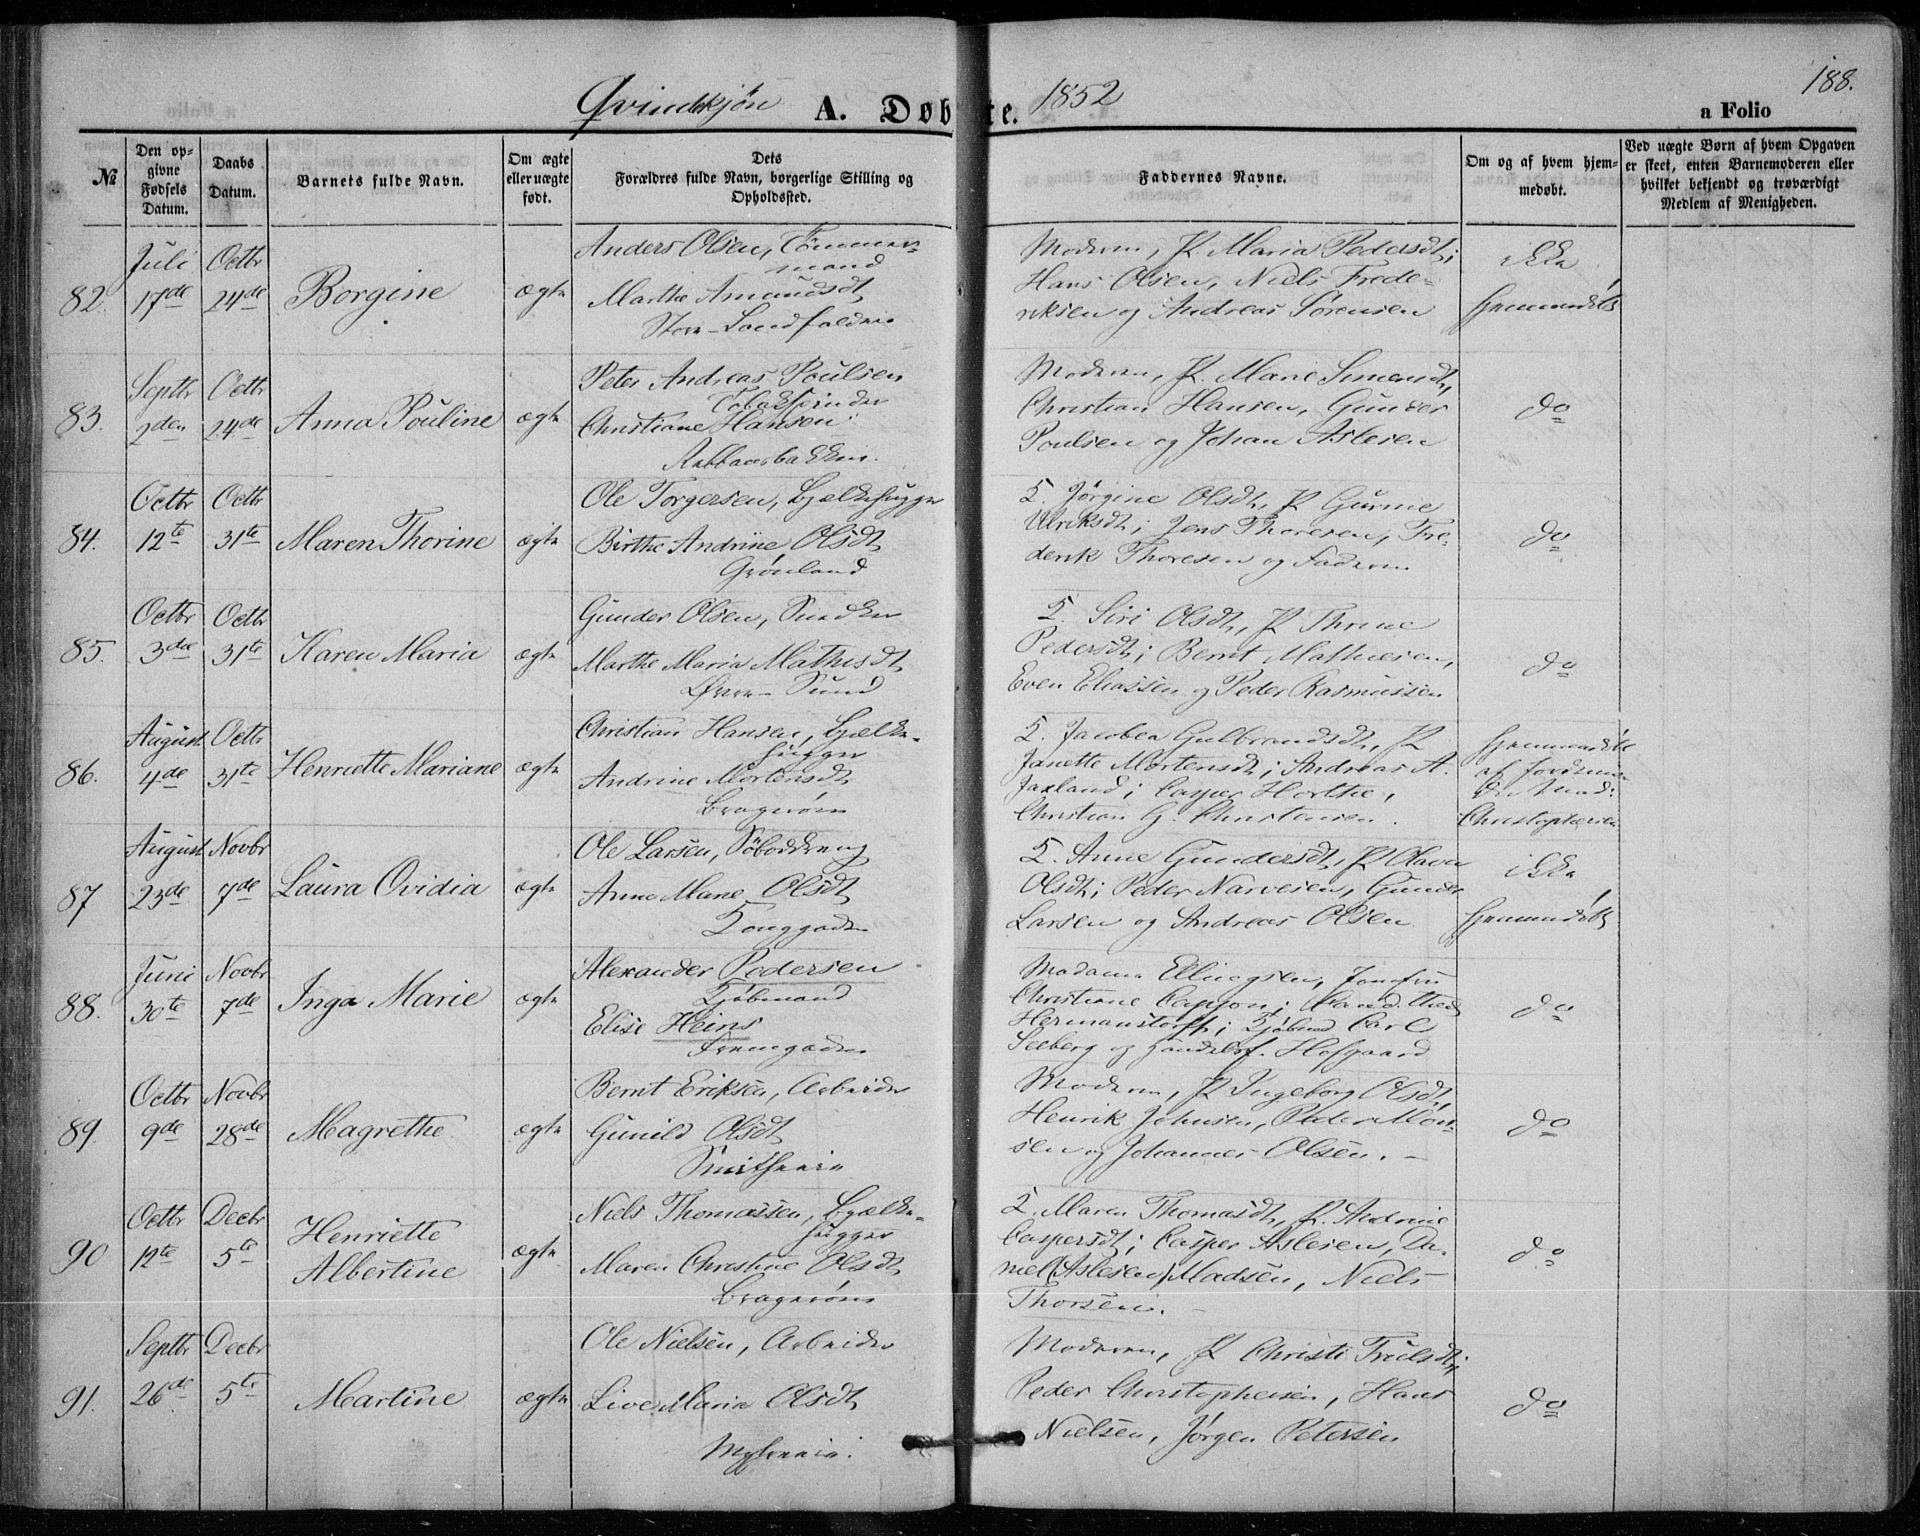 Qvindekjön A. Döbte. 1852 a Folio 188.
№
Den opgivne Fødsels Datum.
Daabs Datum.
Barnets fulde Navn.
Om ægte eller uægte født.
Dets Forældres fulde Navn, borgerlige Stilling og Opholdssted.
Faddernes Navne.
Om og af hvem hjemmedøbt.
Ved uægte Børn af hvem Opgaven er skeet, enten Barnemoderen eller hvilket bekjendt og troværdigt Medlem af Menigheden.
82. Juli 17de Octbr 24de Borgine ægte
Anders Olsen, Tømmermand
Marthe Amundsdt
Store-Landfaldene
Moderen, P. Maria Pedersdt;
Hans Olsen, Niels Frede-
riksen og Andreas Sørensen
ikke hjemmedøbt
83. Septbr 2den Octbr 24de Anna Pouline ægte
Peter Andreas Poulsen
Tobakspinder
Christiane Hansen
Møderen, P. Marie Simensdt,
Christian Hansen, Gunder
Poulsen og Johan Aslesen
do
84. Octbr 12te Octbr 31te Maren Thorine ægte
Ole Torgersen, Bjælkehugger
Birthe Andrine Olsdt
Grønland
Jørgine Olsdt, P. Gurine
Ulriksdt; Jens Thoresen, Fre-
derik Thoresen og Faderen
do
85. Octbr 3die Octbr 31te Karen Maria ægte
Gunder Olsen, Snedker
Marthe Maria Mathisdt
Øvre-Sund
Siri Olsdt, P. Thrine
Pedersdt; Bernt Mathiesen,
Even Eliassen og Peder Rasmussen
do
86. August 4de Octbr 31te Henriette Mariane ægte
Christian Hansen, Bjælke-
hugger
Andrine Mortensdt
Bragerøen
Jacobea Gulbrandsdt, P.
Janette Mortensdt; Andreas A.
Jaxland; Casper Horthe,
Christian G. Christensen.
hjemmedøbt
af Jordemo-
der Mad:
Christophersen
87 August 23de Novbr 7de Laura Ovidia ægte
Ole Larsen, Søboddreng
Anne Marie Olsdt
Tonggaden
Anne Gundersdt, P. Olava
Olsdt; Peder Narvesen, Gunder
Larsen og Andreas Olsen
ikke hjemmedøbt
88. Juni 30te Novbr 7de Inga Marie ægte
Alexander Pedersen
Kjöbmand
Elise Heins
Strømgaden
Madame Ellingsen, Jomfru
Christiane Cappon; Cand. theol
Hermanstorff; Kjöbmd Carl
Seeberg og Handelsf. Hofgaard
do
89. Octbr 9de Novbr 28de Magrethe ægte
Bernt Eriksen, Arbeider
Gunild Olsdt
Smithseie
Moderen, P. Ingeborg Olsdt,
Henrik Johnsen, Peder Mon-
sen og Johannes Olsen.
do
90 Octbr 12te Decbr 5te Henriette Albertine ægte
Niels Thomassen, Bjælke-
hugger
Maren Christine Olsdt
Bragerøen
Maren Thomasdt, P. Andrine
Caspersdt; Casper Aslesen, Da-
niel (Aslesen) Madsen, Niels
Thorsen.
do
91. Septbr 26de Decbr 5te Martine ægte
Ole Nielsen, Arbeider
Live Maria Olsdt
Myhreeie.
Moderen, P. Christi Truelsdt;
Peder Christophersen, Hans
Nielsen, Jørgen Petersen
do